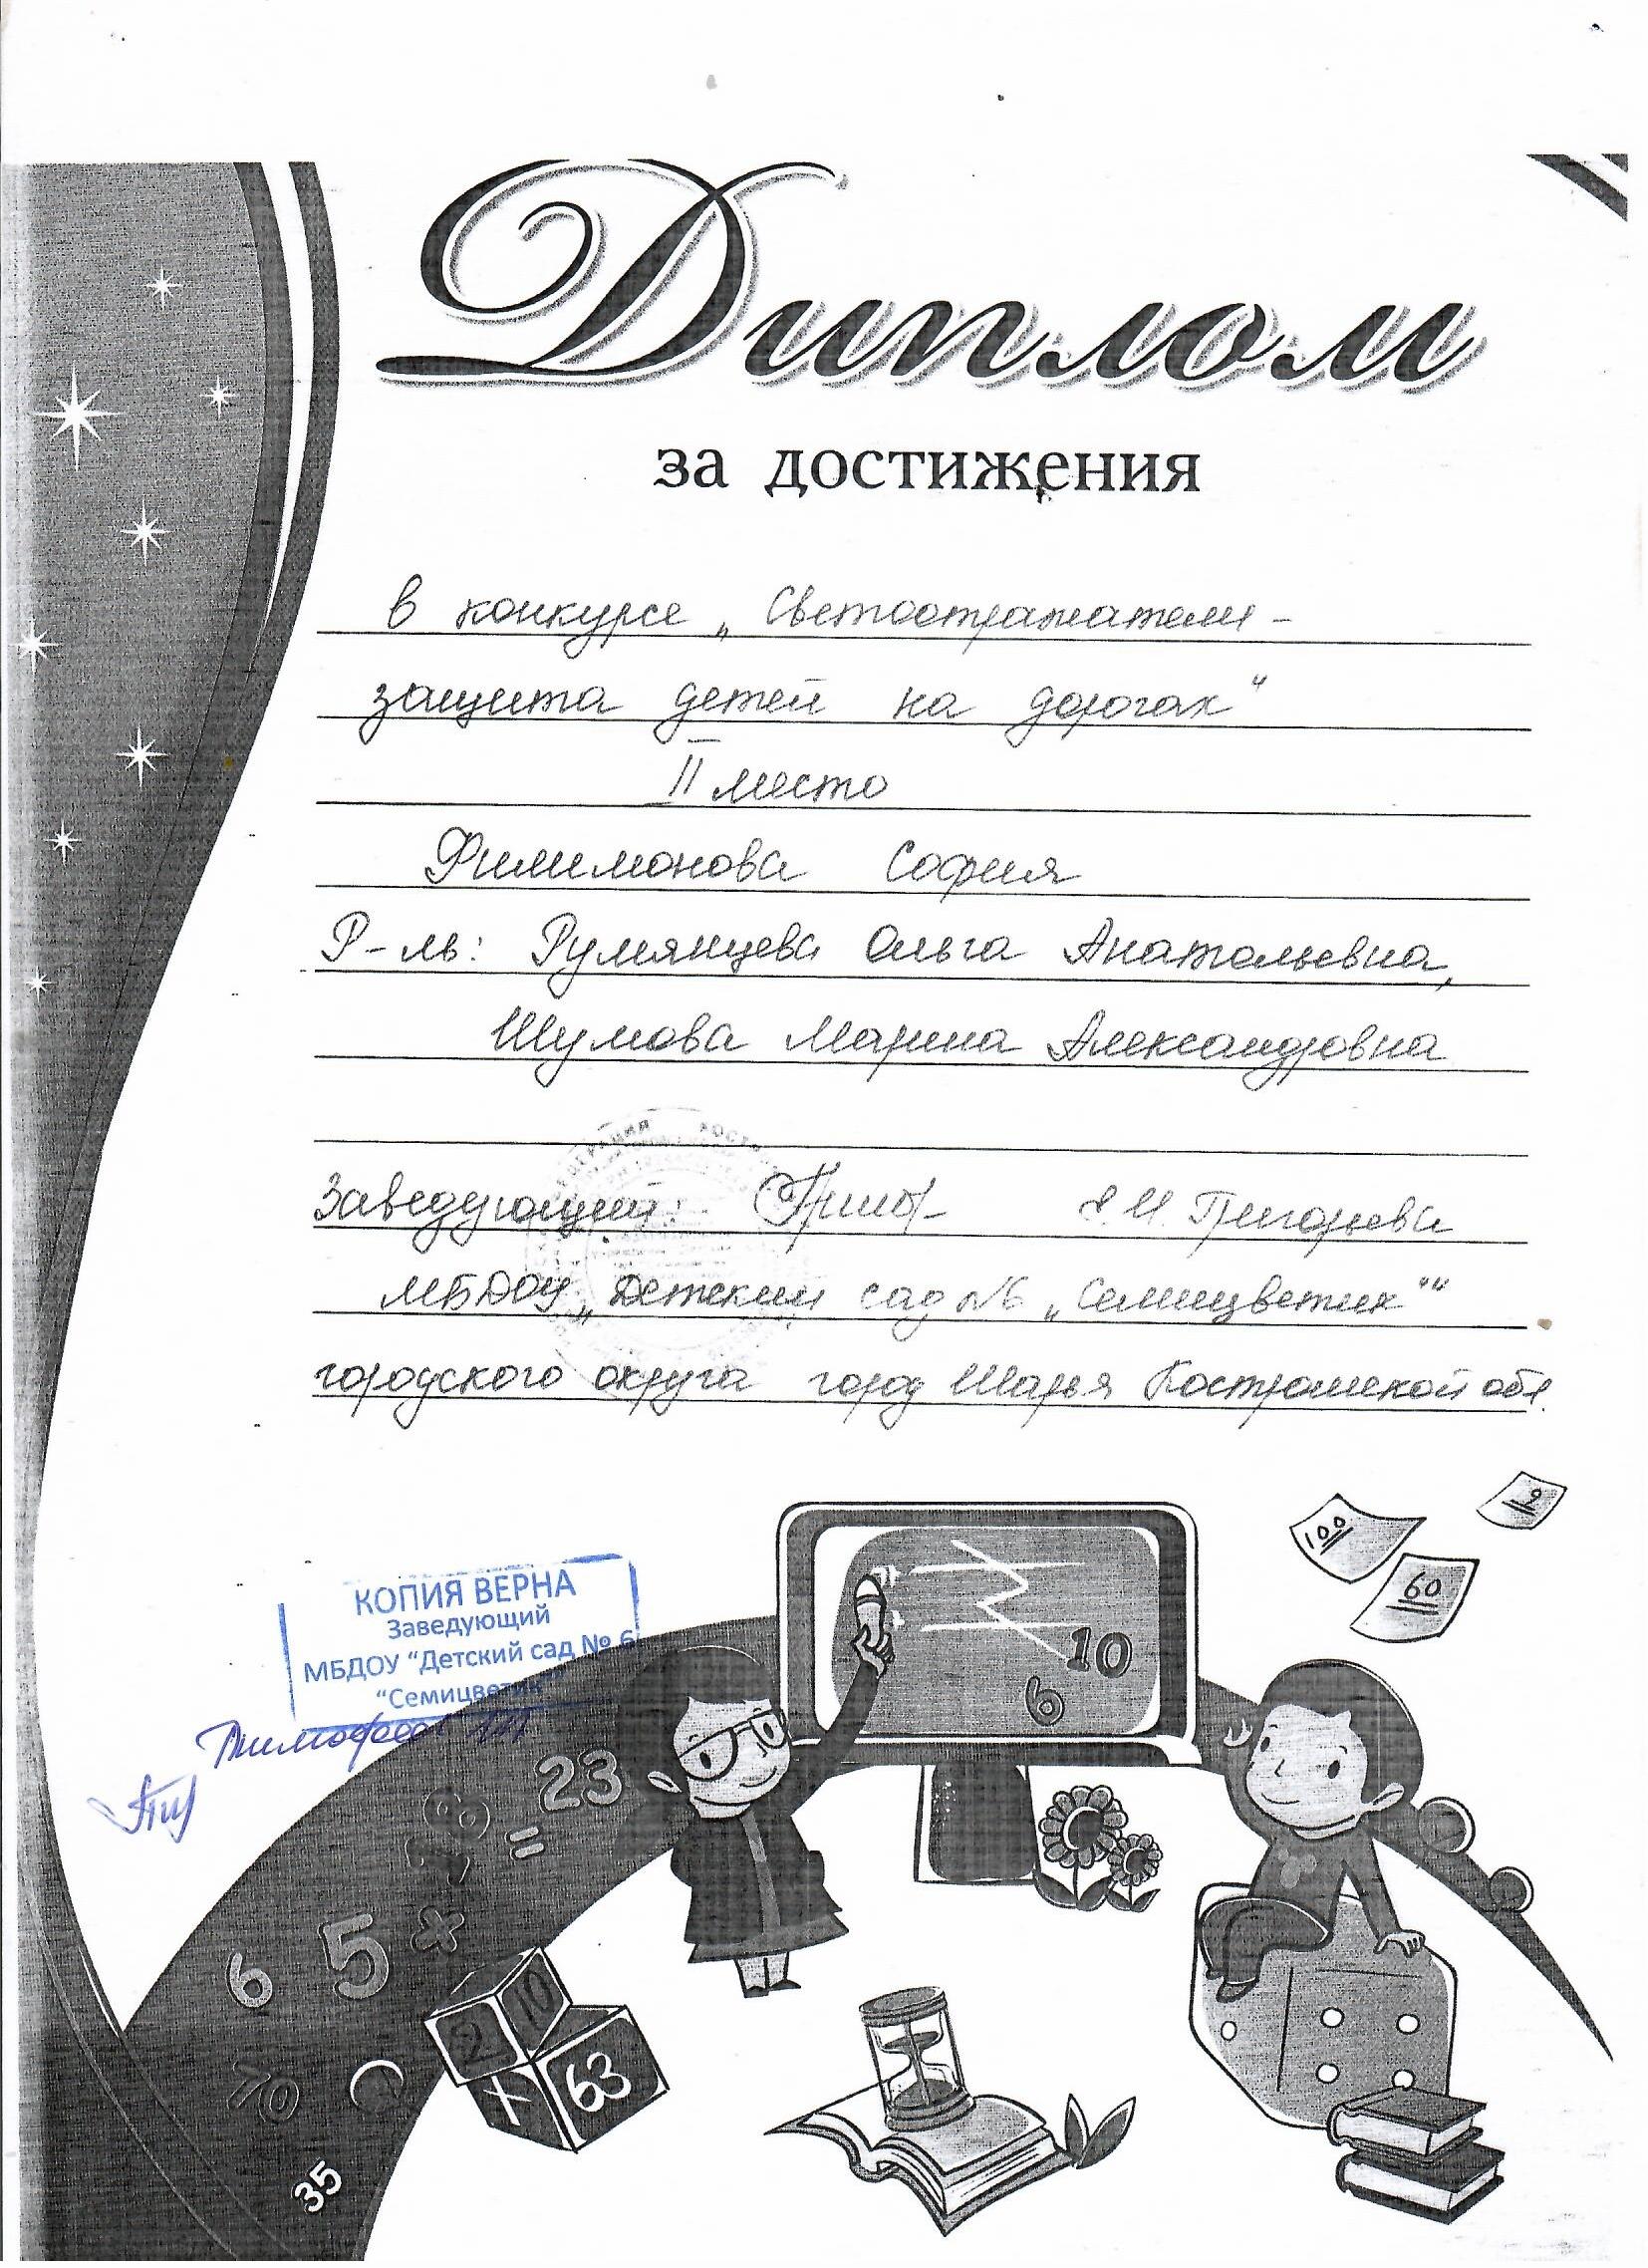 Диплом
за достижения
в конкурсе „Светоотражатели -
защита детей на дорогах“
II место
Филимонова София
Р-ль: Румянцева Ольга Анатольевна,
Шумова Марина Александровна
Заведующий: Григорьева
МБДОУ „Детский сад №6 „Семицветик““
городского округа город Шарья Костромской обл.
100
9
60
КОПИЯ ВЕРНА
Заведующий
МБДОУ “Детский сад № 6
“Семицветик”
10
6
23
=
18
×
5
6
10
2
63
70
35